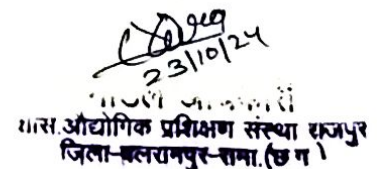 23/10/24
शास. औद्योगिक प्रशिक्षण संस्था राजपुर
जिला-बलरामपुर-रामा. (छ ग)